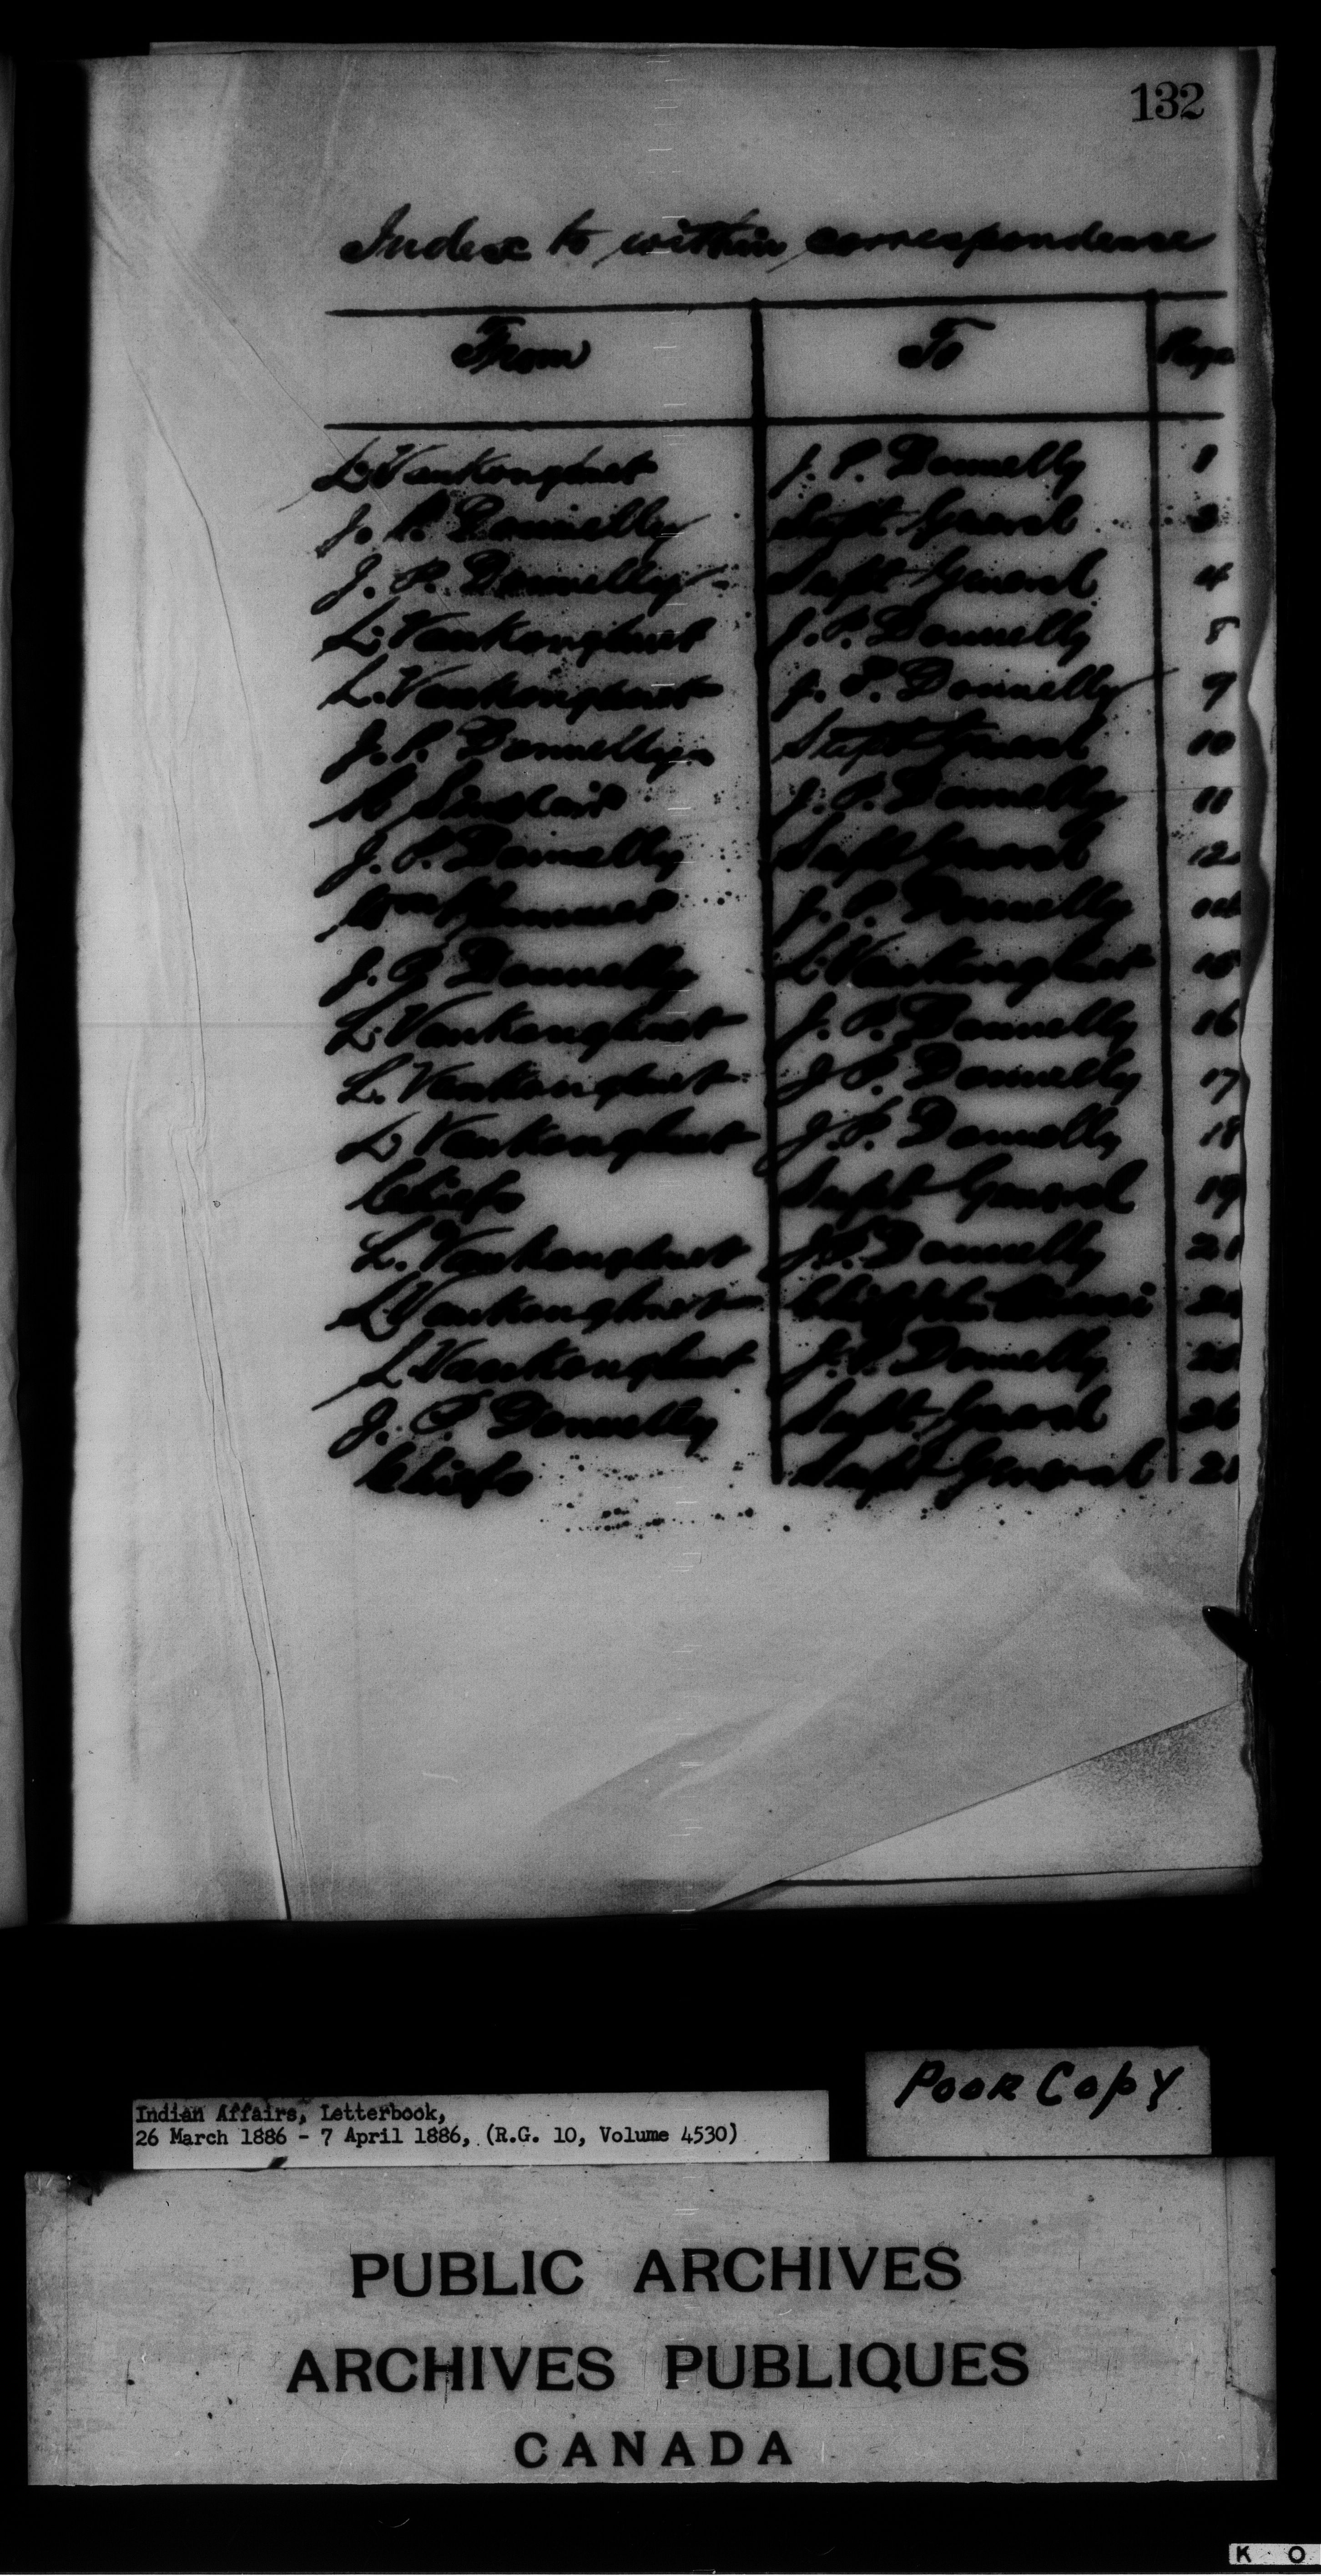 132
Index to within correspondence
From To Page
L. Vankoughnet J. P. Donnelly 1
J. P. Donnelly Supt General
J. P. Donnelly Supt General 4
L. Vankoughnet J. P. Donnelly 8
L. Vankoughnet J. P. Donnelly 9
J. P. Donnelly Supt General 10
Sinclair J. P. Donnelly 11
J. P. Donnelly Supt General 12
J. P. Donnelly 14
J. P. Donnelly L. Vankoughnet 15
L. Vankoughnet J. P. Donnelly 16
L. Vankoughnet J. P. Donnelly 17
L. Vankoughnet J. P. Donnelly 18
Chiefs Supt General 19
L. Vankoughnet J. P. Donnelly 21
L Vankoughnet Chief
L Vankoughnet J. P. Donnelly
J. P. Donnelly Supt General 26
Chiefs Supt General
Poor Copy
Indian Affairs, Letterbook,
26 March 1886 - 7 April 1886, (R.G. 10, Volume 4530)
PUBLIC ARCHIVES
ARCHIVES PUBLIQUES
CANADA
K O